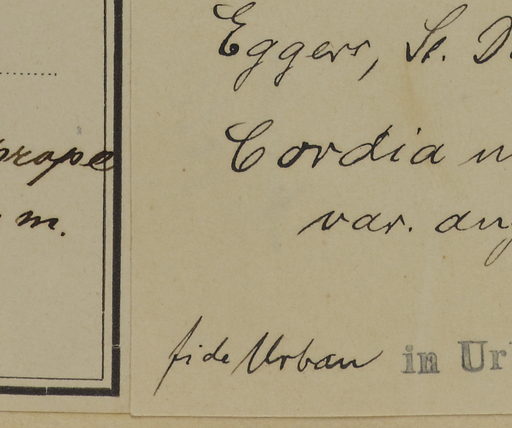 prope
m.
Eggers, St. D
Cordia
var. ang
fide Urban in Ur